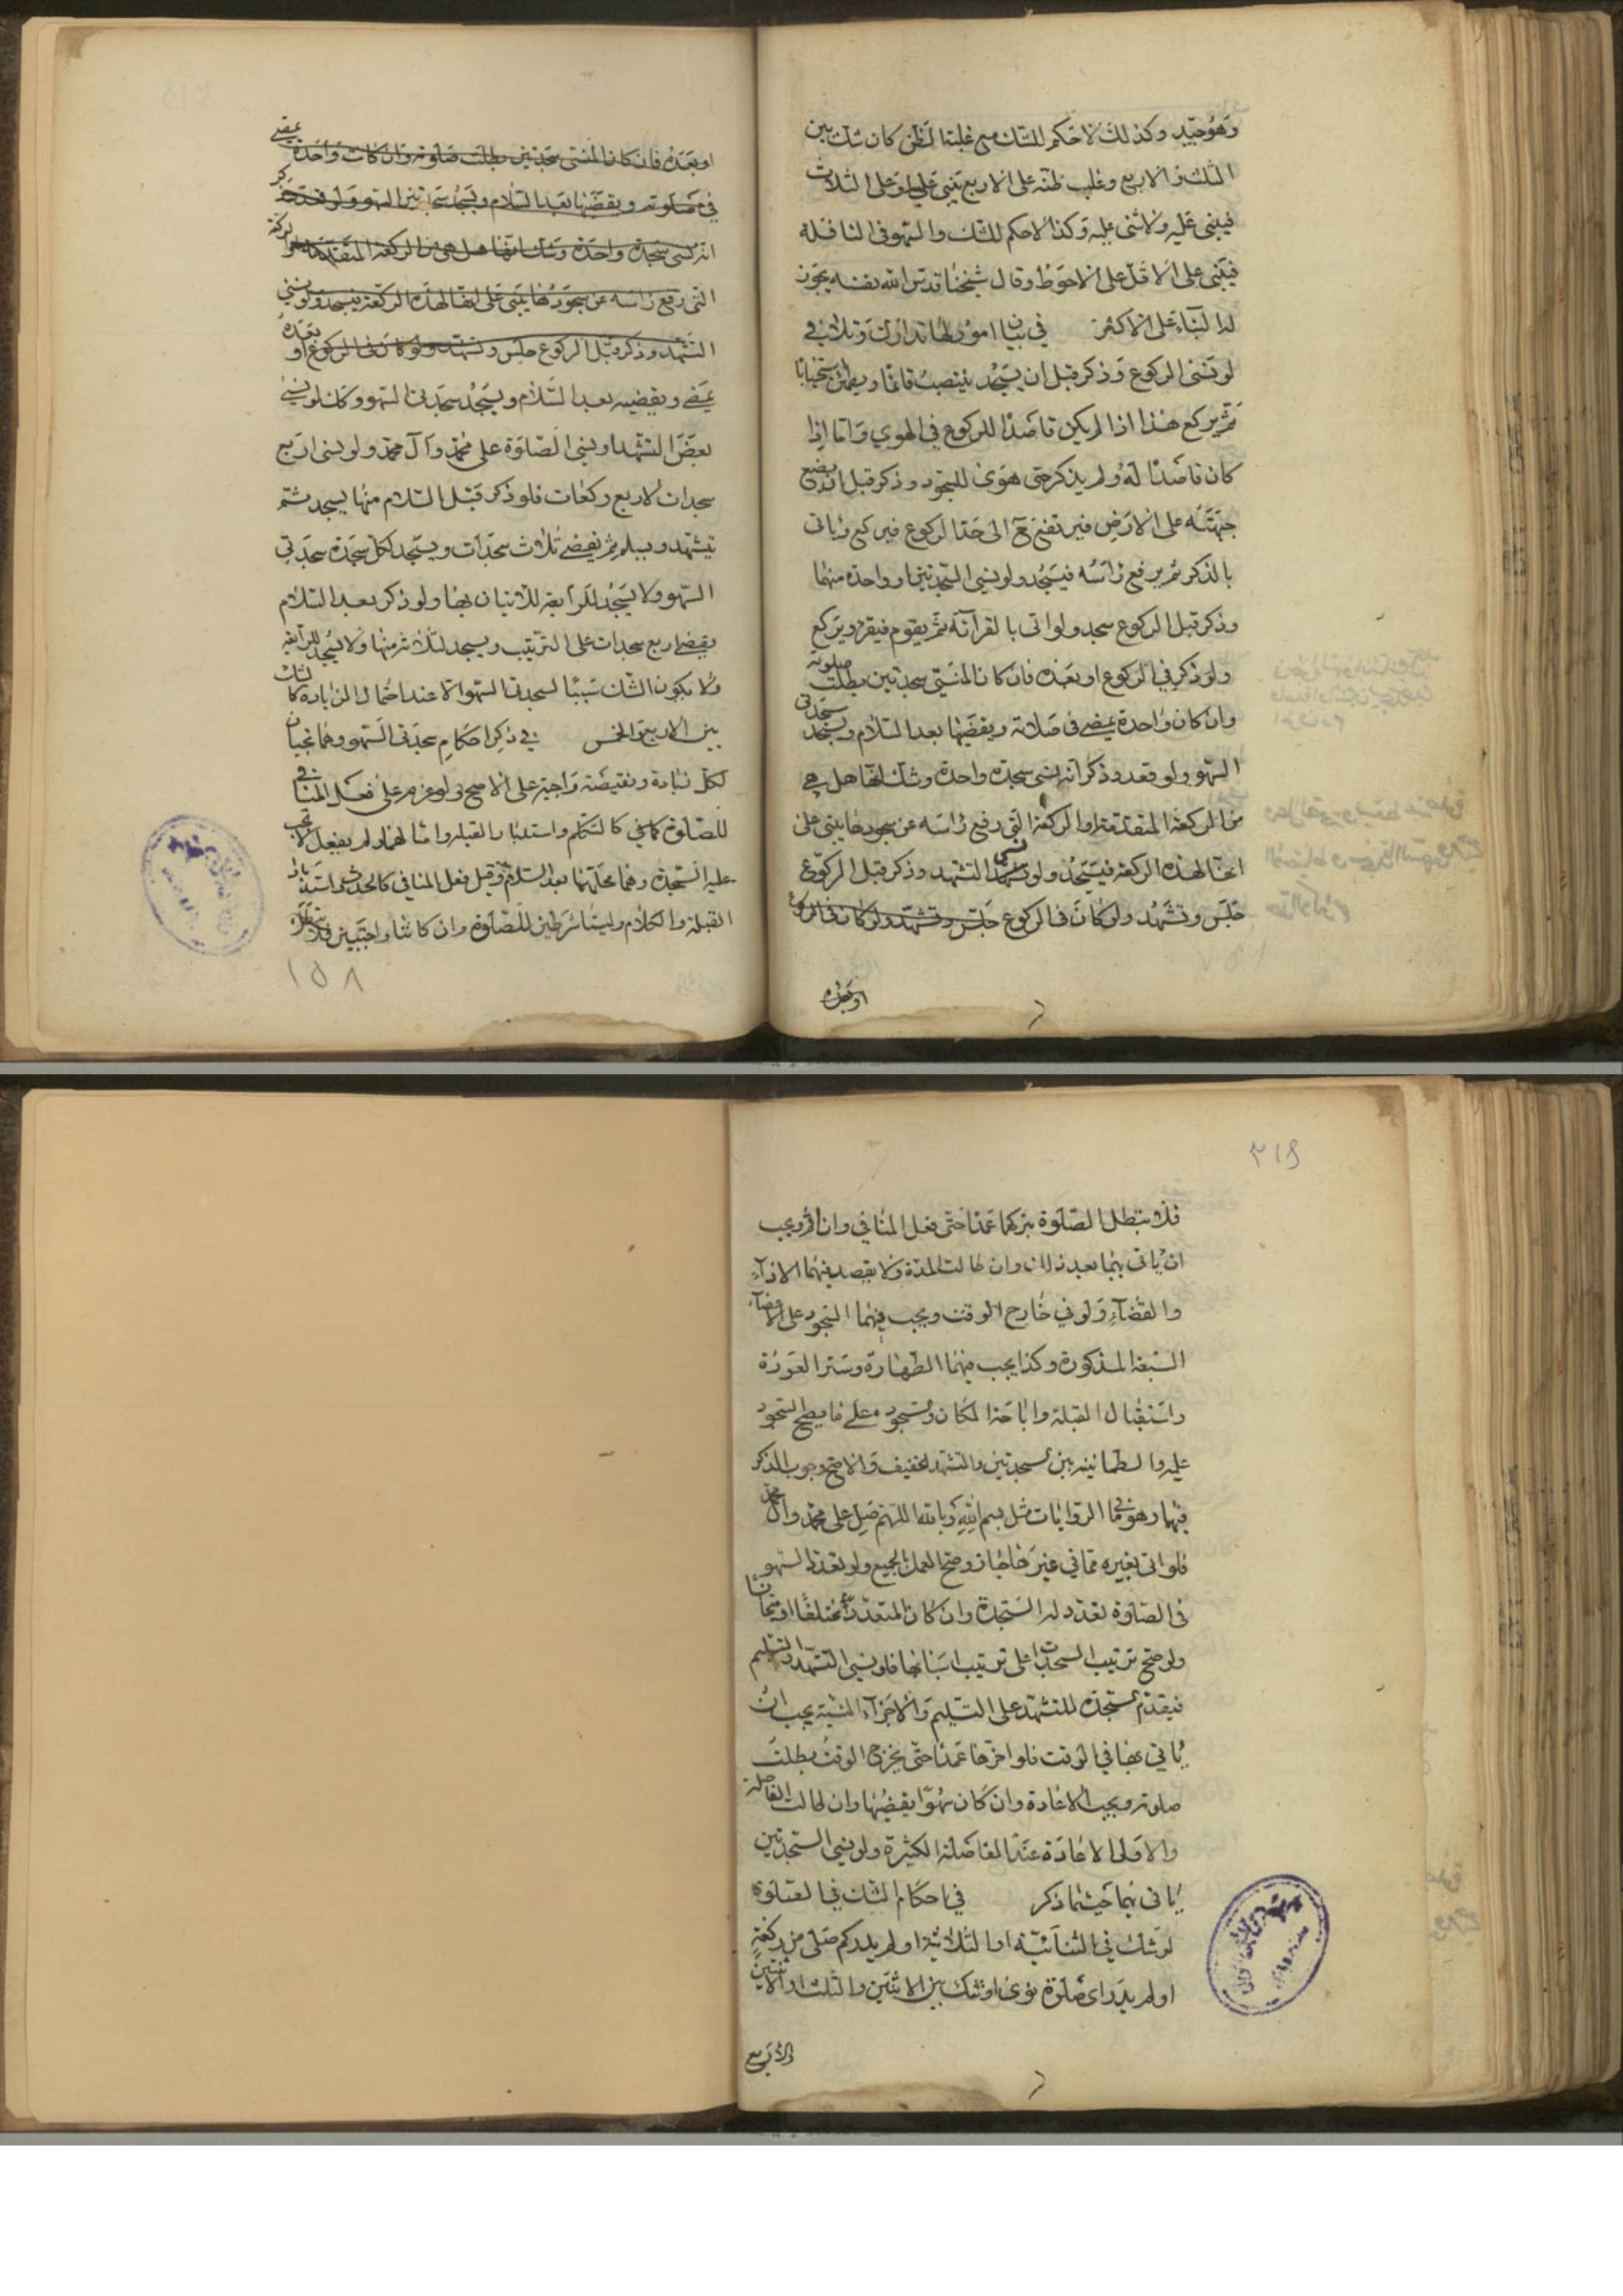 وهو جيد وكذلك لا حكم للشك مع غلبة الظن كان شك بين
الثلث والاربع وغلب ظنه على الاربع يبنى عليه او على الثلاث
فيبنى عليه ولا شئ عليه وكذا لا حكم للشك والسهو فى النافلة
فيبنى على الاقل على الاحوط وقال شيخنا قدس الله نفسه يجوز
له البناء على الاكثر في بيان امور لها تدارك وتلافي
لو نسى الركوع وذكر قبل ان يسجد ينتصب قائما ويطمئن استحبابا
ثم يركع هذا اذا لم يكن قاصدا للركوع في الهوي واما اذا
كان قاصدا له ولم يذكر حتى هوى للسجود وذكر قبل ان يضع
جبهته على الارض فيرتفع الى حد الركوع فيركع وياتى
بالذكر ثم يرفع راسه فيسجد ولو نسى السجدتين او واحدة منهما
وذكر قبل الركوع سجد ولو اتى بالقرآئة ثم يقوم فيقرء ويركع
ولو ذكر في الركوع او بعده فان كان المنسى سجدتين بطلت صلوته
وان كان واحدة يمضے فى صلاته ويقضيها بعد السلام ويسجد سجدتى
السهو ولو قعد وذكر انه نسى سجدة واحدة وشك انها هل هى
من الركعة المتقدمة او الركعة التى رفع راسه عن سجودها يبنى على
انها لهذه الركعة فيسجد ولو نسى التشهد وذكر قبل الركوع
جلس وتشهد ولو كان فى الركوع جلس وتشهد ولو كان فى الركوع
او بعده
او بعده فان كان المنسى سجدتين بطلت صلوته وان كانت واحدة يمضے
في صلوته ويقضيها بعد السلام ويسجد سجدتين السهو ولو قعد ذكر
انه نسى سجدة واحدة وشك انها هل هى من الركعة المتقدمة او الركعة
التى رفع راسه عن سجودها يبنى على انها لهذه الركعة فيسجد ولو نسى
التشهد وذكر قبل الركوع جلس وتشهد ولو كان فى الركوع او بعده
يمضے ويقضيه بعد السلام ويسجد سجدتى السهو وكذا لو نسى
بعض التشهد او نسى الصلوة على محمد وآل محمد ولو نسى اربع
سجدات لاربع ركعات فلو ذكر قبل السلام منها يسجد ثم
يتشهد ويسلم ثم يقضے ثلاث سجدات ويسجد لكل سجدة سجدتى
السهو ولا يسجد للرابعة للاتيان بها ولو ذكر بعد السلام
يقضے اربع سجدات على الترتيب ويسجد لثلاثة منها ولا يسجد للرابعة
ولا يكون الشك سببا لسجدتى السهو الا عند احتمال الزيادة كالشك
بين الاربع والخمس في ذكر احكام سجدتى السهو وهما تجبان
لكل زيادة ونقيصة واجبة على الاصح ولو عزم على فعل المنافى
للصلوة كما في كالتكلم واستدبار القبلة وامثالهما ولم يفعل لا تجب
عليه السجدة وهما محلهما بعد السلام وقبل فعل المنافي كالحدث واستدبار
القبلة والكلام وليستا شرطين للصلوة وان كانتا واجبتين
١٥٨
٢١٩
فلا تبطل الصلوة بتركهما عمدا حتى فعل المنافي وان اثم ويجب
ان ياتى بهما بعد ذلك وان طالت المدة ولا يقصد فيهما الادآء
والقضآء ولو في خارج الوقت ويجب فيهما السجود على الاعضآء
السبعة المذكورة وكذا يجب فيهما الطهارة وستر العورة
واستقبال القبلة واباحة المكان والسجود على ما يصح السجود
عليه والطمانينة بين السجدتين والتشهد الخفيف والاصح وجوب الذكر
فيهما وهو في الروايات مثل بسم الله وبالله اللهم صل على محمد وآل محمد
فلو اتى بغيره مما في غير جاز وصح العمل بالجميع ولو تعدد السهو
فى الصلوة تعدد له السجدة وان كان المتعدد مختلفا او متجانسا
ولو صح ترتيب السجدات على ترتيب اسبابها فلو نسى التشهد والتسليم
فيقدم سجدة للتشهد على التسليم والاجزآء المنسية يجب ان
ياتي بها في الوقت فلو اخرها عمدا حتى يخرج الوقت بطلت
صلوته ويجب الاعادة وان كان سهوا يقضيها وان طالت الفاصلة
والاولى الاعادة عند الفاصلة الكثيرة ولو نسى السجدتين
ياتى بهما حيثما ذكر في احكام الشك في الصلوة
لو شك في الثنائية او الثلاثية او لم يدر كم صلى من ركعة
او لم يدر اى صلوة نوى او شك بين الاثنتين والثلث او الاثنتين
والاربع